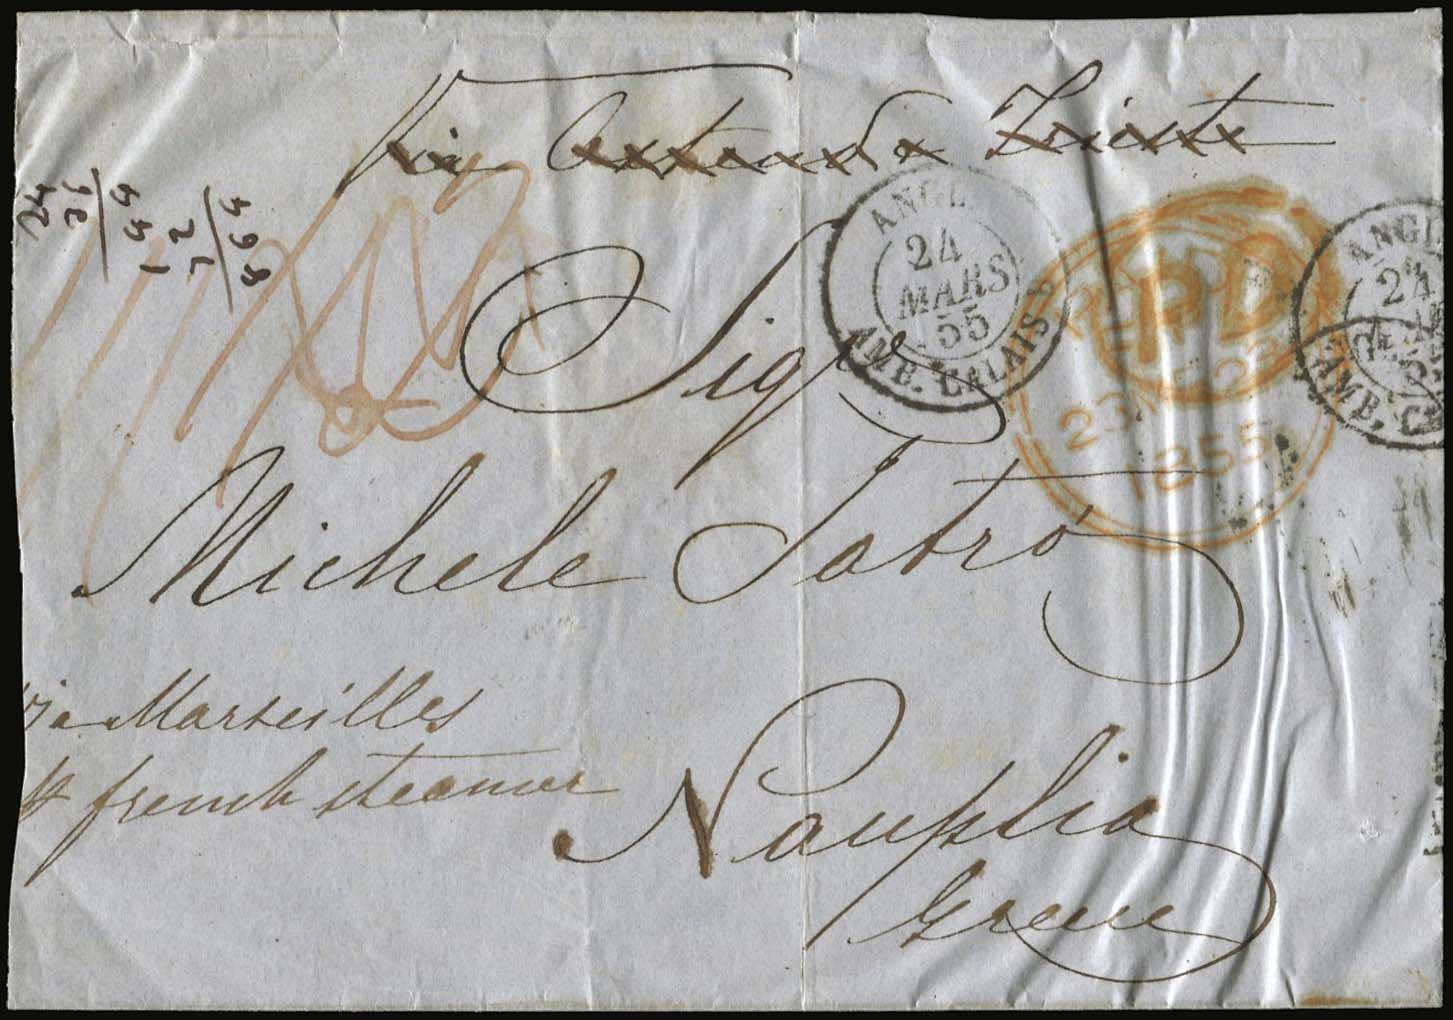 Via Ostend & Trieste
ANGL.
24
MARS
55
AMB. CALAIS
P.D
23
1855
ANGL
24
AMB. C
Sigr
Michele Iatrò
via Marseilles
pr french steamer
Nauplia
Greece